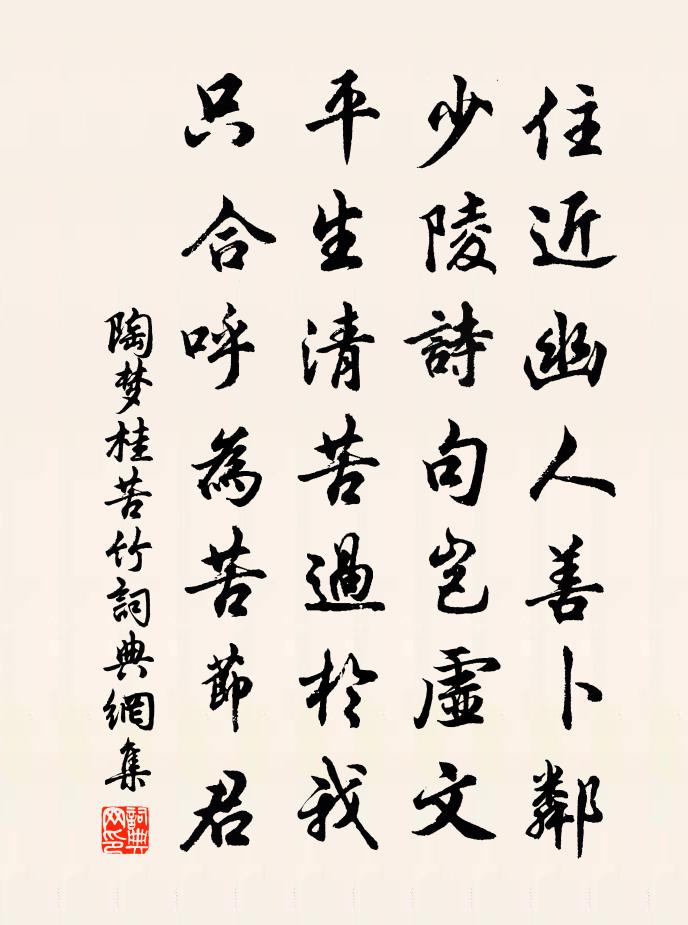 住近幽人善卜鄰
少陵詩句豈虛文
平生清苦過於我
只合呼為苦節君
陶梦桂苦竹詞典網集
詞典網印